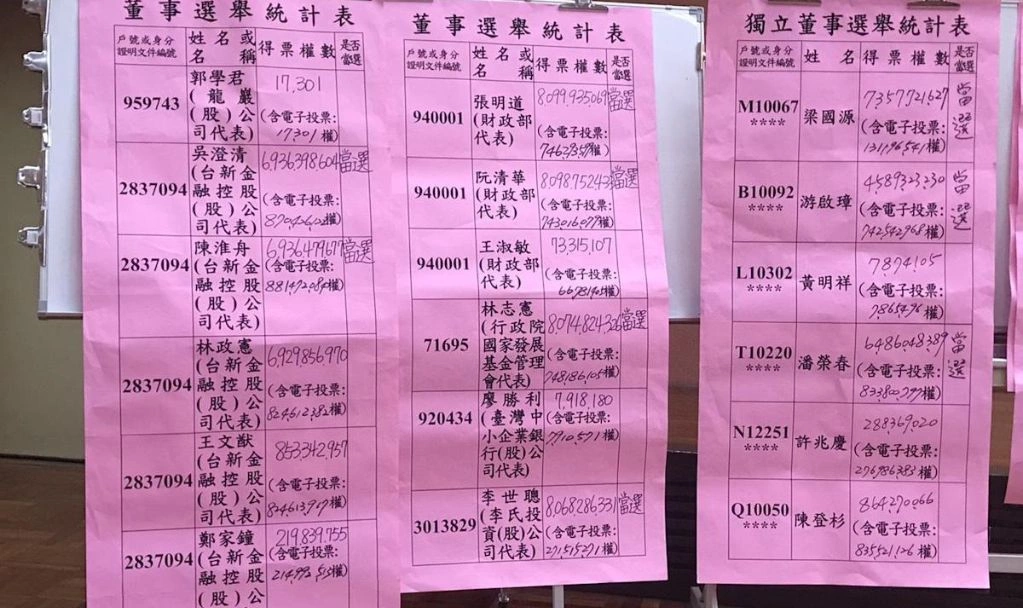 董事選舉統計表
戶號或身分
證明文件編號
姓名或
名稱
得票權數
是否
當選
959743
郭學君
(龍巖
(股)公
司代表)
17,301
(含電子投票:
17,301權)
2837094
吳澄清
(台新金
融控股
(股)公
司代表)
6,936,398,604
當選
(含電子投票:
2837094
陳淮舟
(台新金
融控股
(股)公
司代表)
6,936,479,677
當選
(含電子投票:
881,472,084權)
2837094
林政憲
(台新金
融控股
(股)公
司代表)
6,929,856,970
(含電子投票:
824,612,382權)
2837094
王文猷
(台新金
融控股
(股)公
司代表)
853,342,957
(含電子投票:
834,613,917權)
2837094
鄭家鐘
(台新金
融控股
(股)公
219,839,755
(含電子投票:
董事選舉統計表
戶號或身分
證明文件編號
姓名或
名稱
得票權數
是否
當選
940001
張明道
(財政部
代表)
8,099,935,069
當選
(含電子投票:
940001
阮清華
(財政部
代表)
當選
(含電子投票:
743,016,077權)
940001
王淑敏
(財政部
代表)
73,315,107
(含電子投票:
66,981,405權)
71695
林志憲
(行政院
國家發展
基金管理
會代表)
8,074,824,326
當選
(含電子投票:
748,186,105權)
920434
廖勝利
(臺灣中
小企業銀
行(股)公
司代表)
7,918,180
(含電子投票:
7,710,571權)
3013829
李世聰
(李氏投
資(股)公
司代表)
8,068,286,331
當選
(含電子投票:
271,515,271權)
獨立董事選舉統計表
戶號或身分
證明文件編號
姓名
得票權數
是否
當選
M10067
****
梁國源
7,357,721,627
當選
(含電子投票:
131,196,541權)
B10092
****
游啟璋
4,589,323,230
當選
(含電子投票:
742,542,968權)
L10302
****
黃明祥
7,894,105
(含電子投票:
7,865,496權)
T10220
****
潘榮春
6,486,048,389
當選
(含電子投票:
833,800,797權)
N12251
****
許兆慶
288,369,020
(含電子投票:
276,986,383權)
Q10050
****
陳登杉
864,270,066
(含電子投票:
835,521,126權)